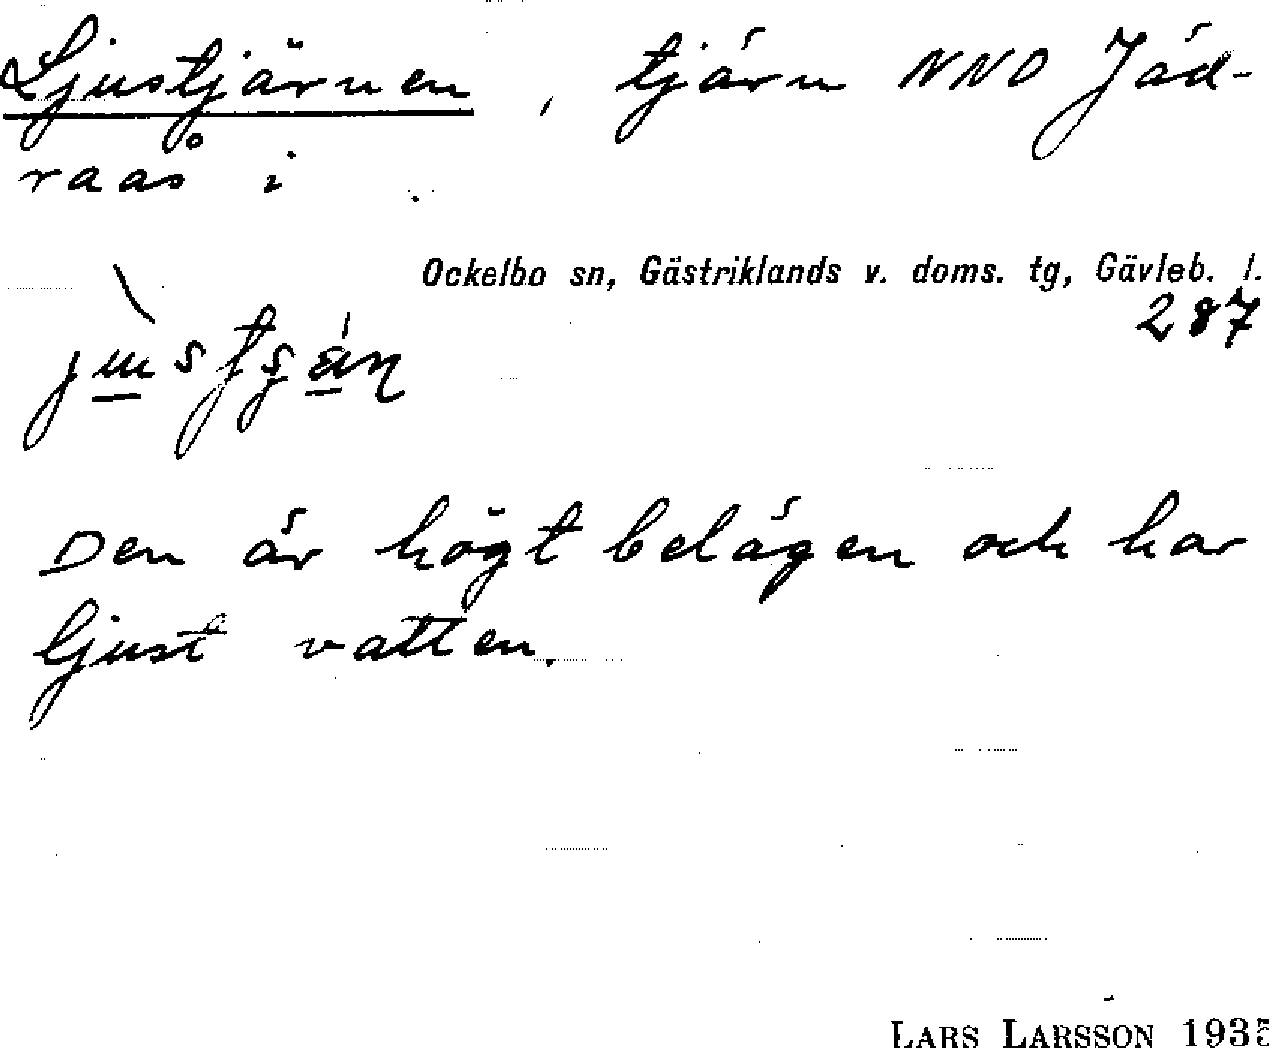 Ljustjärnen, tjärn NNO Jäd-
raås i
Ockelbo sn, Gästriklands v. doms. tg, Gävleb. l.
287
Den är högt belägen och har
ljust vatten.
LARS LARSSON 1935